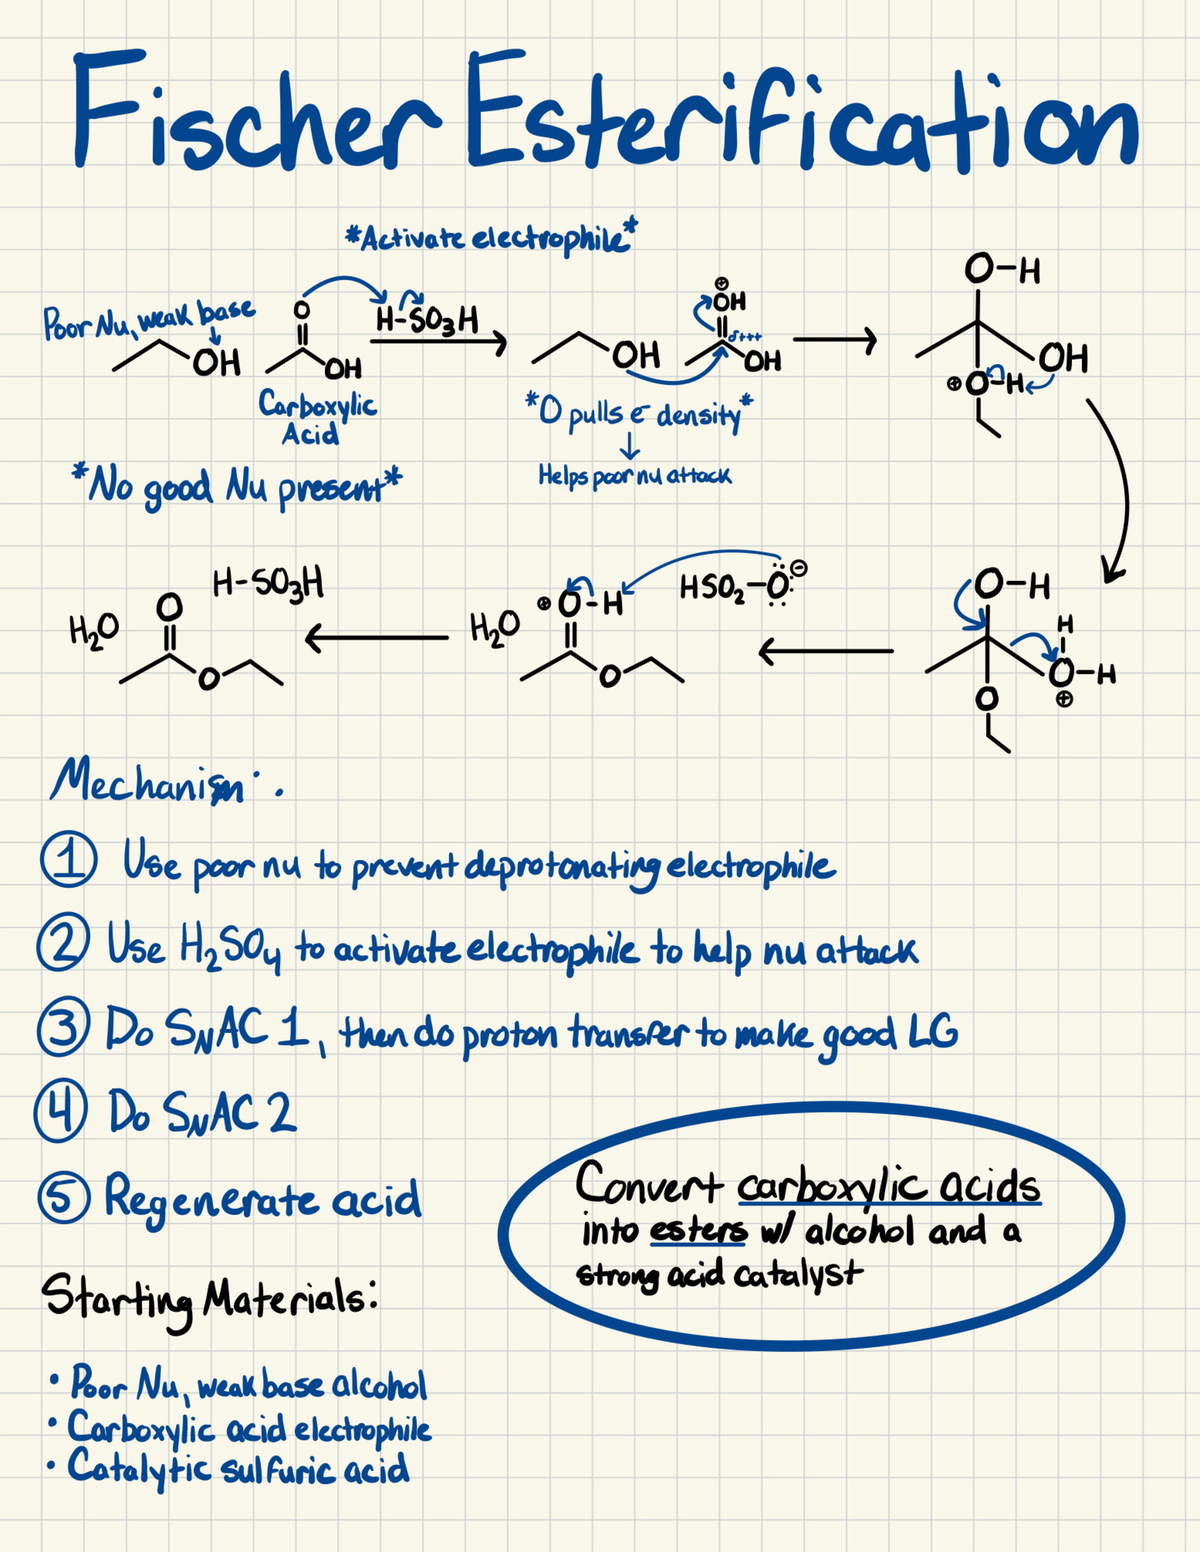 Fischer Esterification
*Activate electrophile*
Poor Nu, weak base
OH
O
OH
H-SO₃H
Carboxylic
Acid
*No good Nu present*
OH
⊕
OH
δ+++
OH
*O pulls e⁻ density*
↓
Helps poor nu attack
O-H
OH
⊕O-H
O-H
H
O-H
⊕
O
HSO₂-O⊖
H₂O
⊕O-H
O
H-SO₃H
H₂O
O
O
Mechanism:
① Use poor nu to prevent deprotonating electrophile
② Use H₂SO₄ to activate electrophile to help nu attack
③ Do SNAC 1, then do proton transfer to make good LG
④ Do SNAC 2
⑤ Regenerate acid
Convert carboxylic acids
into esters w/ alcohol and a
strong acid catalyst
Starting Materials:
• Poor Nu, weak base alcohol
• Carboxylic acid electrophile
• Catalytic sulfuric acid